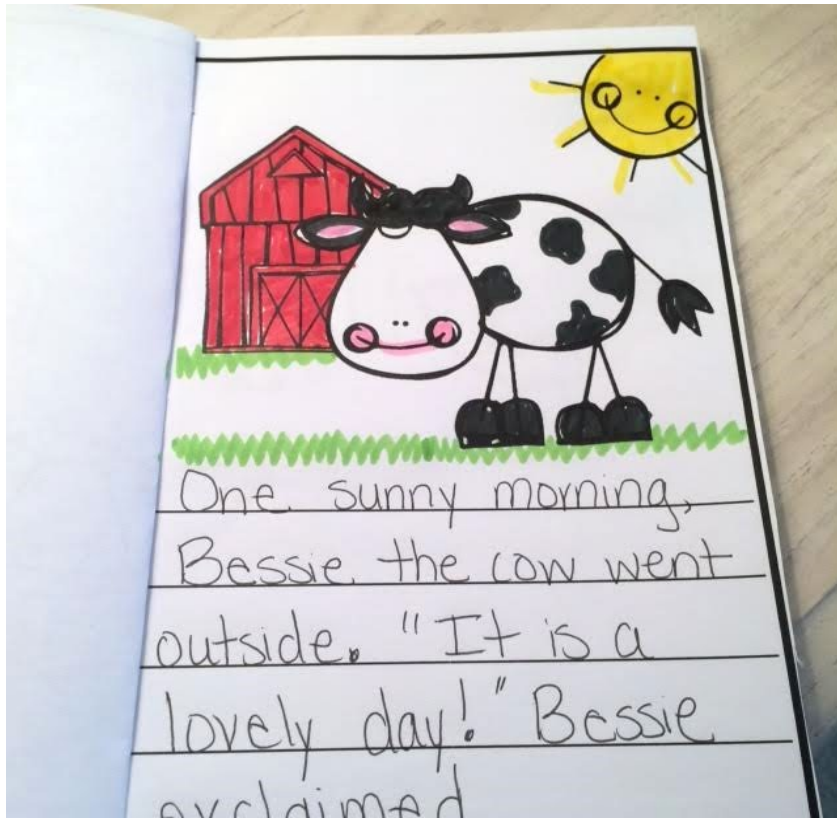 One sunny morning,
Bessie the cow went
outside. "It is a
lovely day!" Bessie
exclaimed